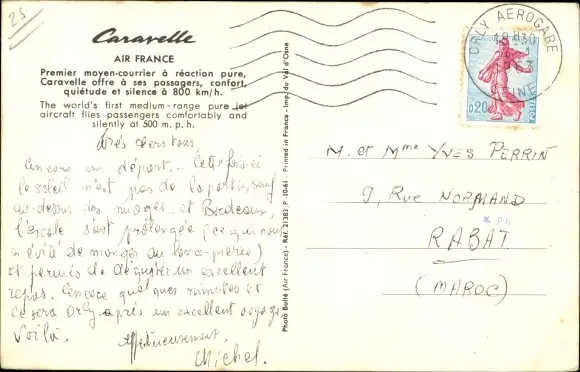 25
Caravelle
AIR FRANCE
Premier moyen-courrier à réaction pure,
Caravelle offre à ses passagers, confort,
quiétude et silence à 800 km/h.
The world's first medium-range pure jet
aircraft flies passengers comfortably and
silently at 500 m.p.h.
Très chers tous,
Encore un départ... Cette fois-ci
le soleil n'est pas de la partie, sauf
au-dessus des nuages... et Bordeaux,
l'escale s'est prolongée (ce qui nous
a évité de manger au lance-pierre)
et permis de déguster un excellent
repas. Encore quelques minutes et
ce sera Orly, après un excellent voyage
Voilà.
Affectueusement,
Michel.
Photo Buité (Air France) - Réf. 21383 P. 10-61 - Printed in France - Imp. du Val d'Oise
ORLY AEROGARE
18H30
3
SEINE
0,20
M. et Mme YVES PERRIN
9, Rue NORMAND
RABAT
(MAROC)